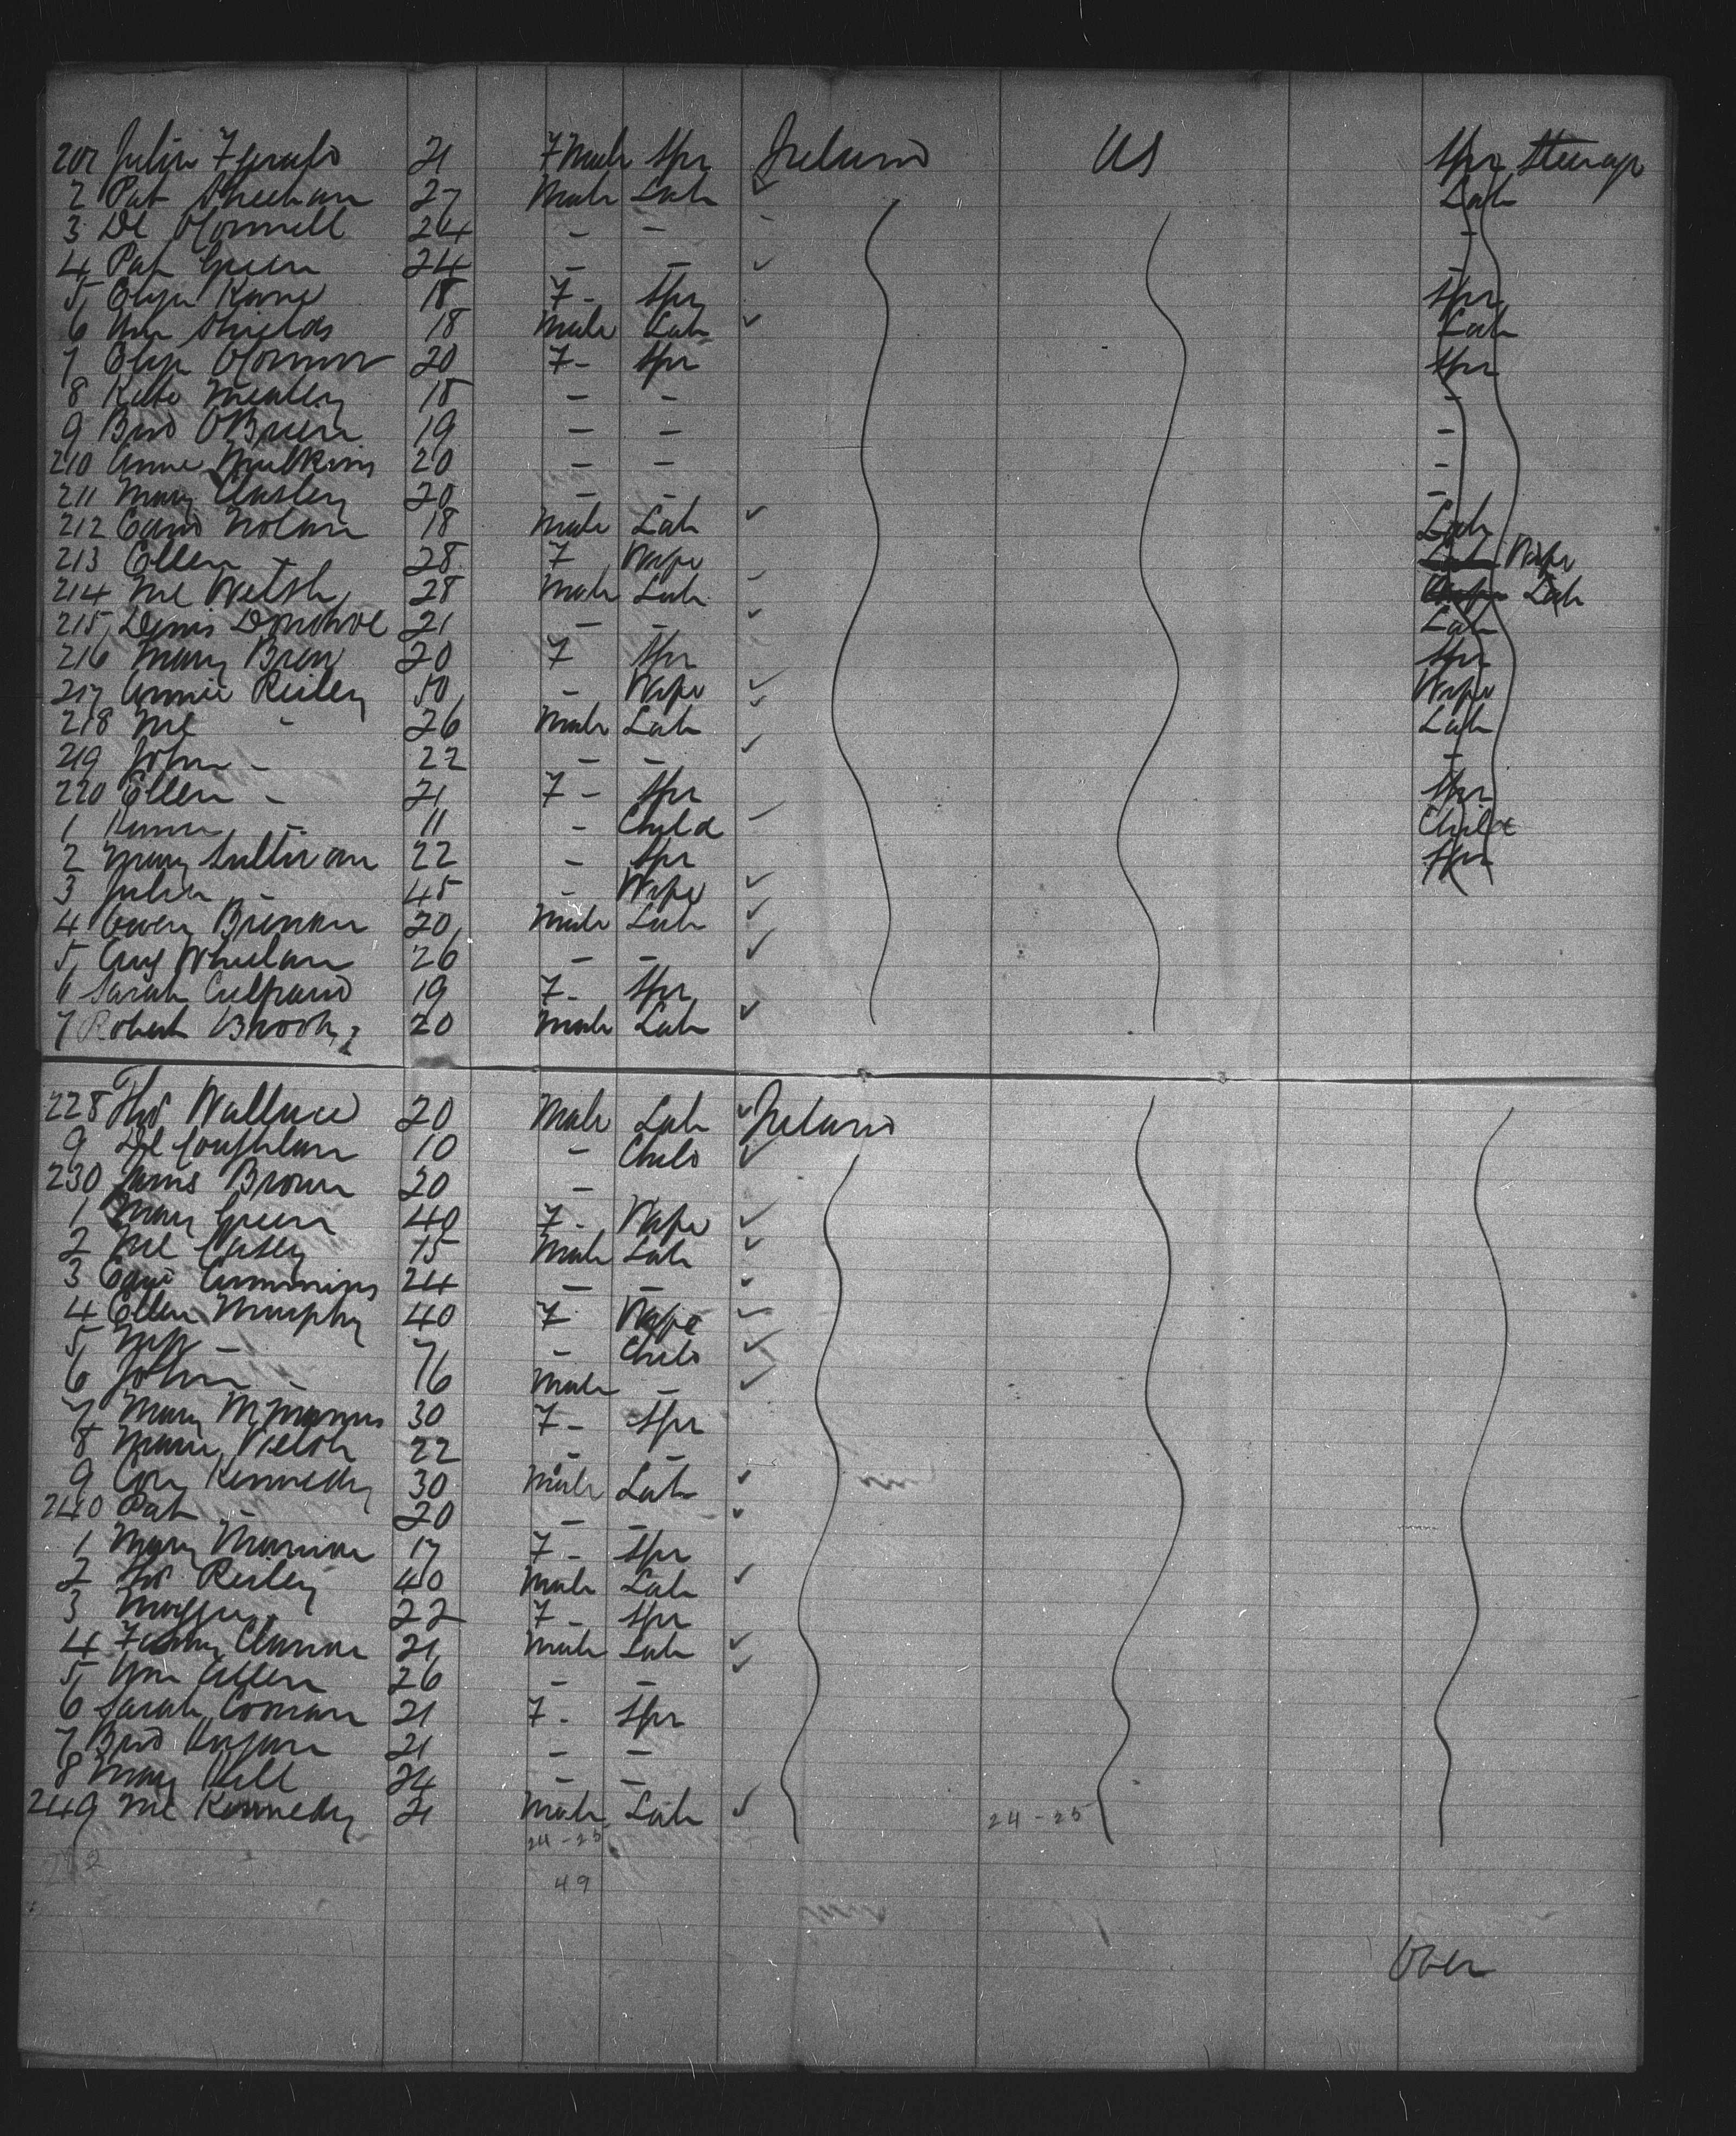 201 Julia Fgerald 21 F Male Spr Ireland US Spr Steerage
2 Pat Sheehan 27 Male Lab Lab
3 Dl OConnell 24 - - -
4 Pat Green 24 - - -
5 Eliza Kane 18 F - Spr Spr
6 Wm Shields 18 Male Lab Lab
7 Eliza OConnor 20 F - Spr Spr
8 Kate 18 - - -
9 Brid OBrien 19 - - -
210 Anne Mulkins 20 - - -
211 Mary 20 - - -
212 Edwd Nolan 18 Male Lab Lab
213 Ellen - 28 F Wife Wife
214 Ml Welsh 28 Male Lab Lab
215 Denis Donohoe 21 - - Lab
216 Mary Bren 20 F Spr Spr
217 Annie Reiley 50 - Wife Wife
218 Ml - 26 Male Lab Lab
219 John - 22 - - -
220 Ellen - 21 F - Spr Spr
1 - 11 - Child Child
2 Mary Sullivan 22 - Spr Spr
3 Julia - 45 - Wife
4 Owen 20 Male Lab
5 Whelan 26 - -
6 Sarah 19 F - Spr
7 Robert Brooks 20 Male Lab
228 Thos Wallace 20 Male Lab Ireland
9 Dl Coughlan 10 - Child
230 James Brown 20 -
1 Mary Green 40 F - Wife
2 Ml Casey 15 Male Lab
3 Cummins 24 - -
4 Ellen Murphy 40 F Wife
5 - 7 - Child
6 John - 6 Male -
7 Mary McManus 30 F - Spr
8 Welsh 22 - -
9 Kennedy 30 Male Lab
240 Pat - 20 - -
1 Mary 17 F - Spr
2 Thos Reiley 40 Male Lab
3 Maggie 22 F - Spr
4 21 Male Lab
5 Wm Allen 26 - -
6 Sarah 21 F - Spr
7 Brid 21 - -
8 Mary Hall 24 - -
249 Ml Kennedy 21 Male Lab
24 - 25 24 - 25
49
Over